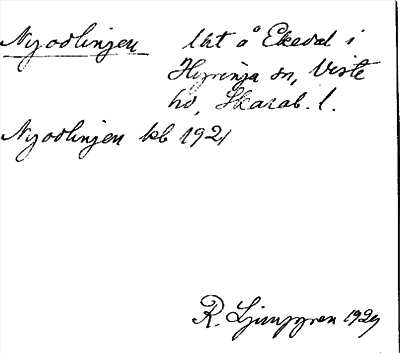 Nyodlingen lht å Ekedal i
Hyringa sn, Viste
hd, Skarab. l.
Nyodlingen kb 1921
R. Ljunggren 1929